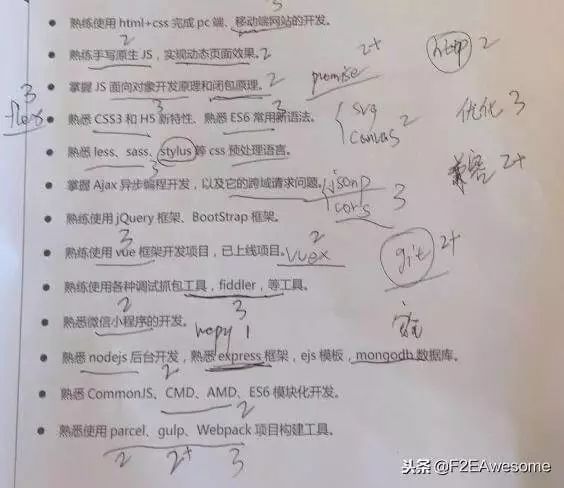 3
熟练使用 html+css 完成 pc 端、移动端网站的开发。
2
熟练手写原生 JS，实现动态页面效果。2
2+
http 2
掌握 JS 面向对象开发原理和闭包原理。2
promise
3
flex
3
3
熟悉 CSS3 和 H5 新特性、熟悉 ES6 常用新语法。
svg
canvas
2
优化 3
熟悉 less、sass、stylus 等 css 预处理语言。
3
兼容 2+
掌握 Ajax 异步编程开发，以及它的跨域请求问题。
jsonp
cors
3
熟练使用 jQuery 框架、BootStrap 框架。
3
熟练使用 vue 框架开发项目，已上线项目。
vuex
2
git 2+
熟练使用各种调试抓包工具，fiddler，等工具。
2
3
熟悉微信小程序的开发。
1
熟悉 nodejs 后台开发，熟悉 express 框架，ejs 模板，mongodb 数据库。
2
2
熟悉 CommonJS、CMD、AMD、ES6 模块化开发。
2
2
熟悉使用 parcel、gulp、Webpack 项目构建工具。
2
2+
3
头条 @F2EAwesome